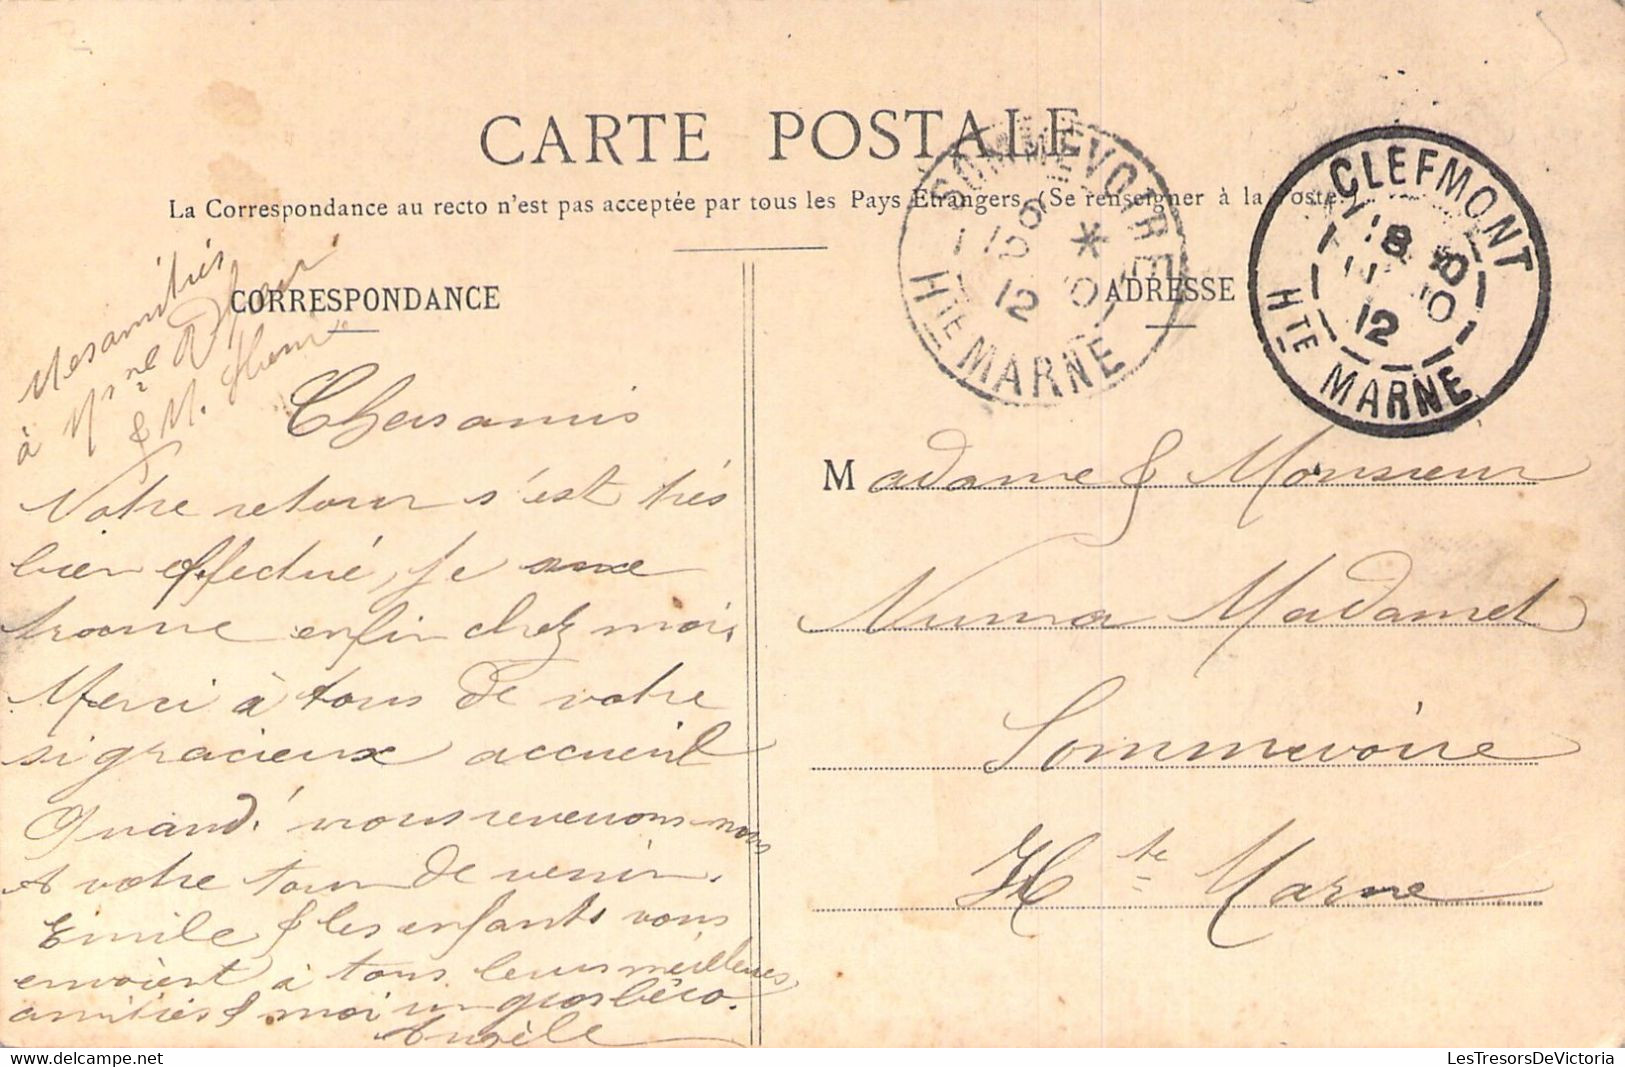 CARTE POSTALE
La Correspondance au recto n'est pas acceptée par tous les Pays Etrangers. (Se renseigner à la Poste.)
CORRESPONDANCE
ADRESSE
SOMMEVOIRE
12
Hte MARNE
CLEFMONT
18
12
Hte MARNE
Mes amitiés
à Mme
& M.
Chers amis
Notre retour s'est très
bien effectué, je me
trouve enfin chez moi,
Merci à tous de votre
si gracieux accueil
Quand nous revenons nous
A votre tour de venir.
Emile & les enfants vous
envoient à tous leurs meilleures
amitiés & moi un gros béco.
Angèle
Madame & Monsieur
Numa Madamet
Sommevoire
Hte Marne
LesTresorsDeVictoria